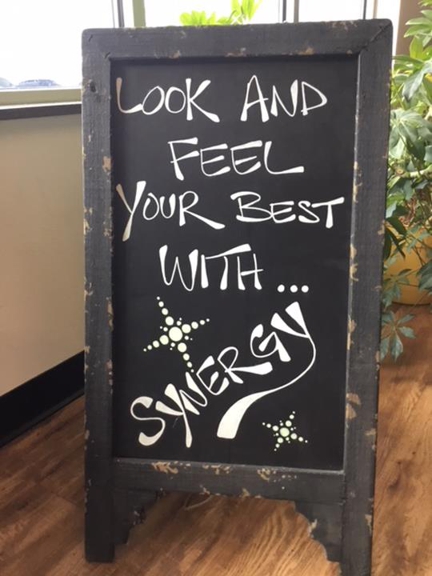 LOOK AND
FEEL
YOUR BEST
WITH ...
SYNERGY